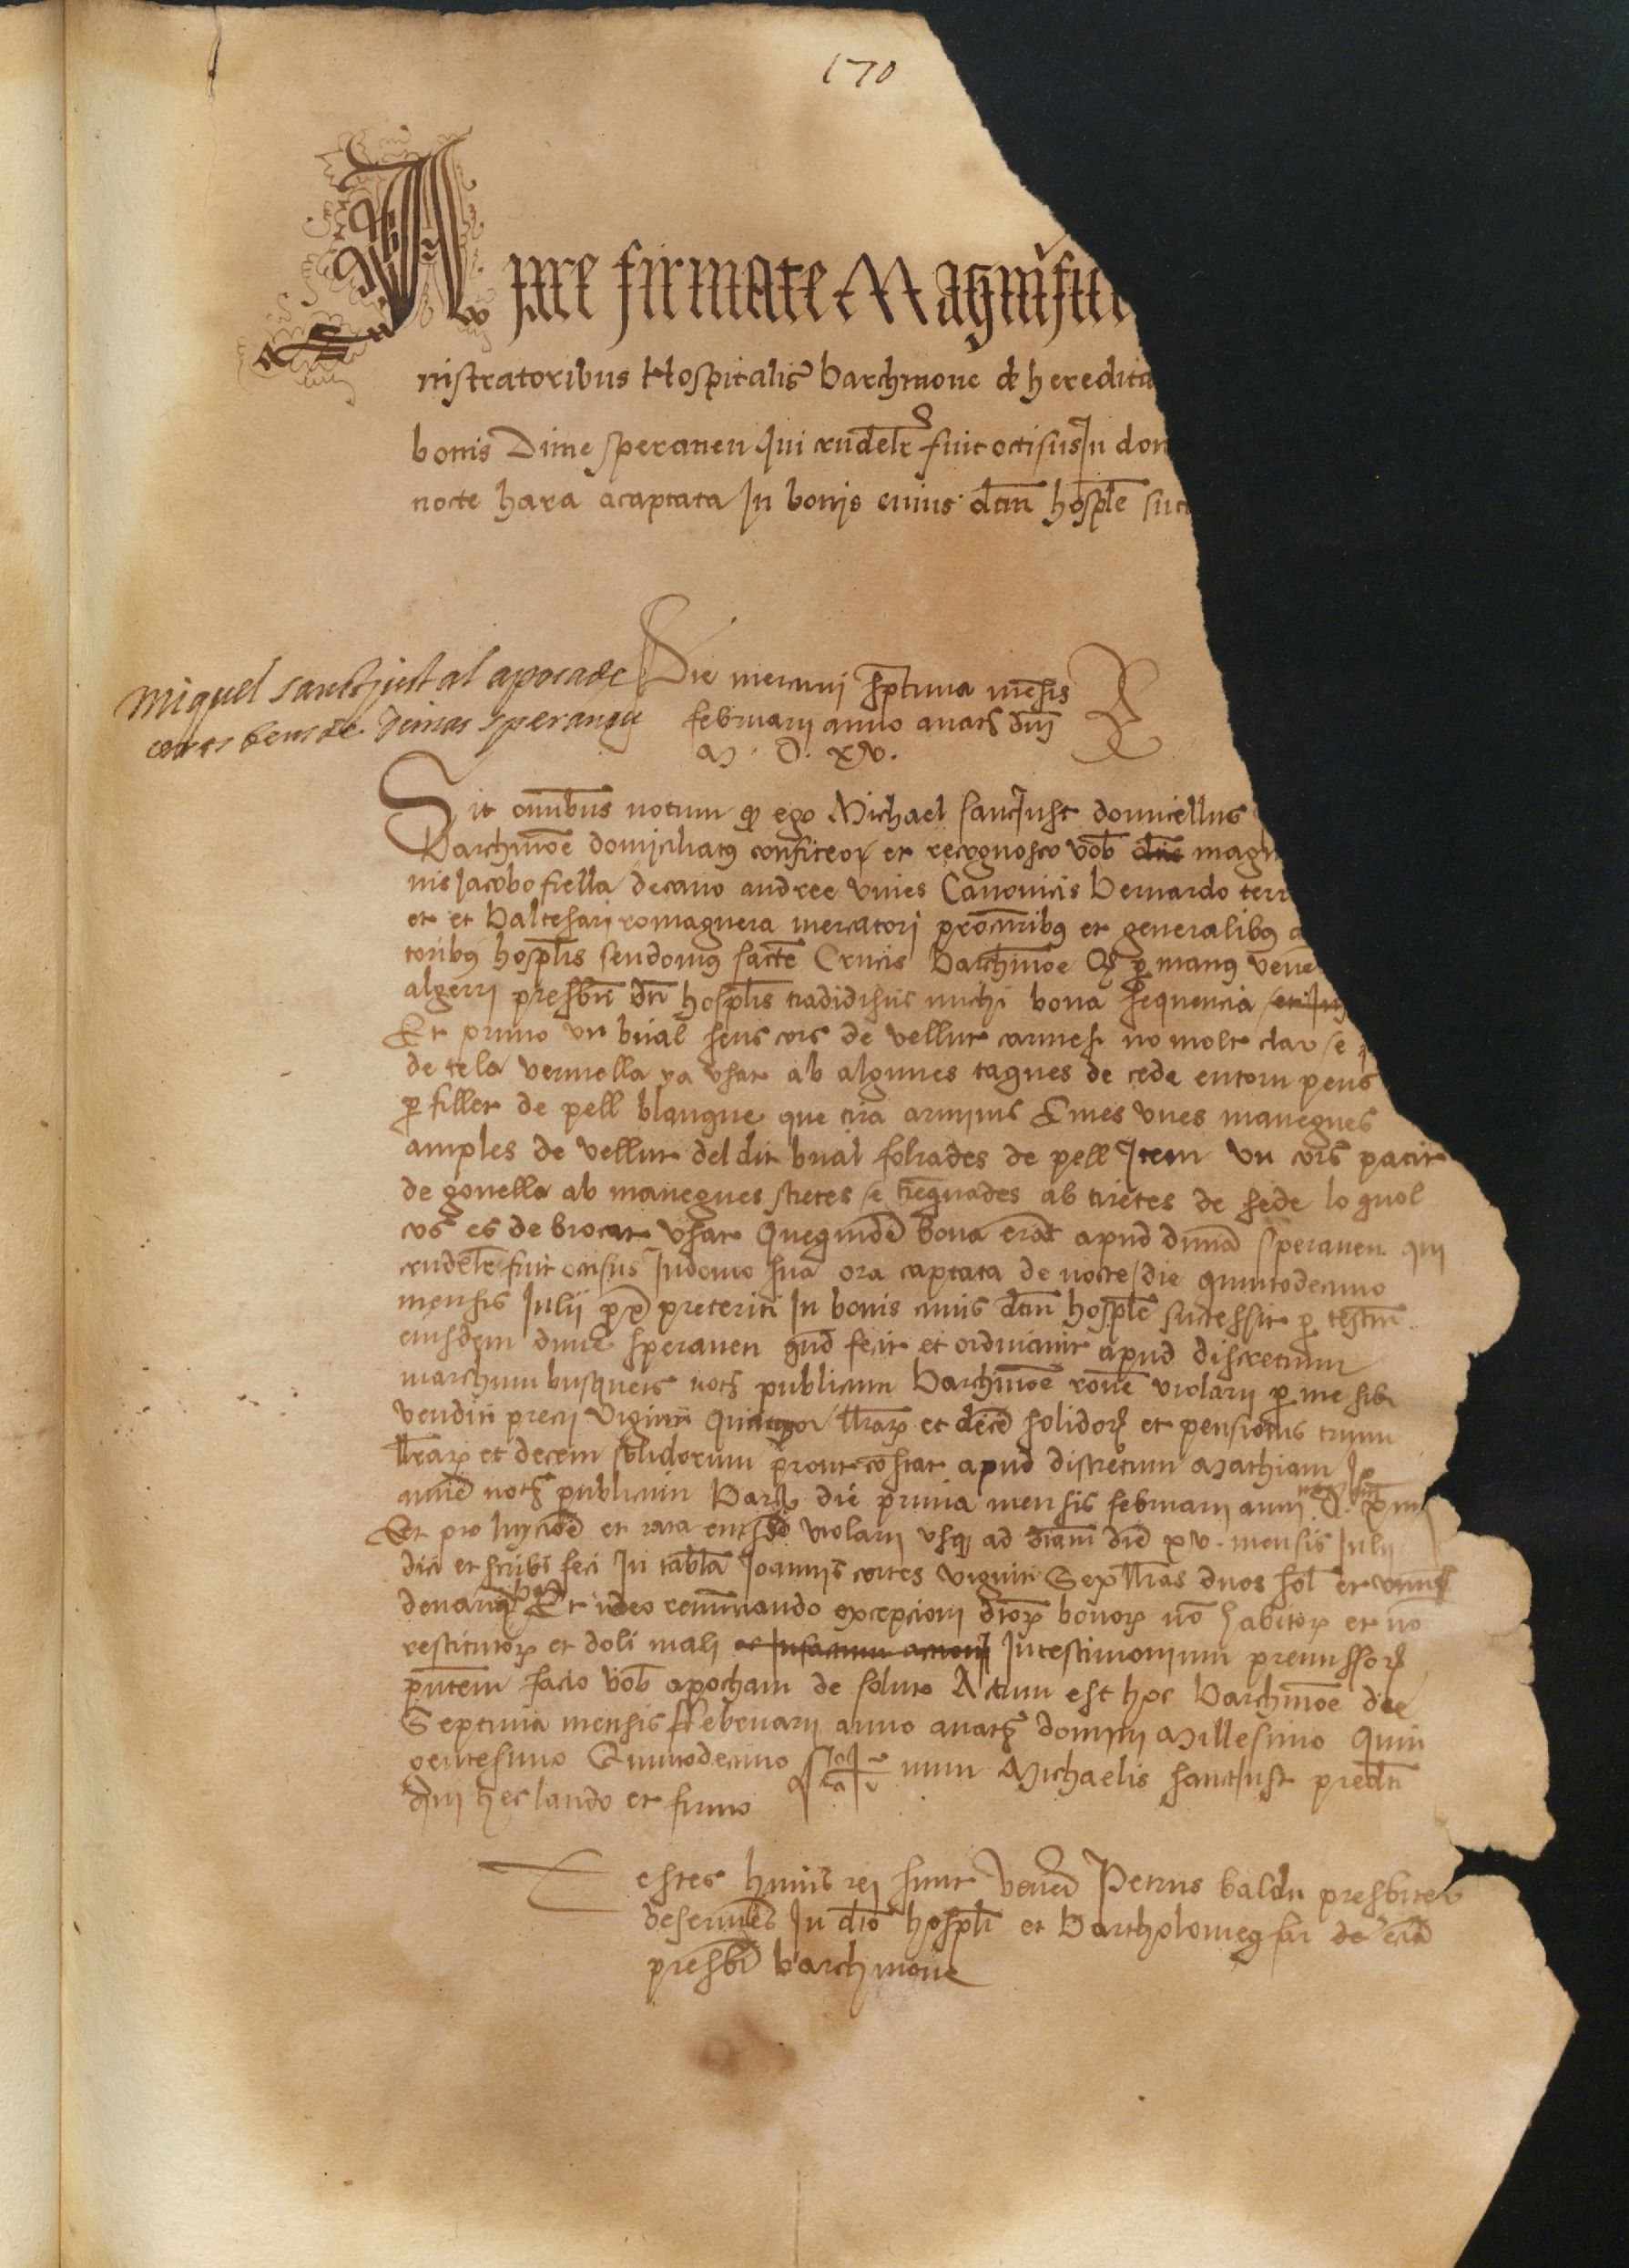 170
A poce firmate Magnifici
nistratoribus Hospitalis barchinone de heredita
bonis Dime speraneu qui crudelr fuit occisus In dom
nocte hara acaptata In bonis cuius dcm hosple succ
Miquel sanctjust al apoca de
certs bens de dimas speraneu
Die mercurij septima mensis
februarij anno a nats dnj
M. D. xv.
Sit omnibus notum q ego Michael sanctJust domicellus
Barchinoe domiciliatus confiteor et recognosco vob magn
nis Jacobo fiella decano andree vives Canonicis bernardo terr
et et baltesari romaguera mercatori procuribus et generalibus a
toribus hosplis sendomus sacte Crucis barchinoe q per manus vene
algerri presbri dti hosplis tradidistis michi bona sequencia
Et primo vn brial sens cors de vellut carmesi no molt clar e
de tela vermella ja vsat ab algunes taques de cede entorn peus
p fillet de pell blanque que tira arminis E mes vnes manegues
amples de vellut del dit brial folrades de pell Item vn cors patit
de gonella ab manegues stretes e trenquades ab tiretes de sede lo qual
cos es de brocat vsat Quequide bona erat apud dima speraneu qui
crudelr fuit occisus Indomo sua ora captata de nocte die quintodecimo
mensis Julij px preteriti In bonis cuius dcm hosple successit p testm
eiusdem dime speraneu qud fecit et ordinavit apud discretum
marchum busquets nots publicum barchinoe rone violarij p me sibi
venditi precij viginti quatuor llrarum et dece solidor et pensionis trium
llrarum et decem solidorum prout costat apud discretum Mathiam
nots publicum Barch die prima mensis februarij anni
Et pro luycioe et rata eiusde violarij vsq ad dictam die xv. mensis Julij
dici et scribi feci In tabla Joannis cortes viginti Sex llras duos sol et vnum
denarium Et ideo renunciando excepcioni dtorum bonorum no habitorum et no
restitutorum et doli mali Intestimonium premissor
pntem facio vob apocham de soluto Actum est hoc barchinoe die
Septima mensis ffebruarij anno a nats domini Millesimo Quin
gentesimo Quintodecimo Sig num Michaelis sanctJust predti
qui hec laudo et firmo
Testes huius rei sunt vened Petrus baldu presbiter
deservies In dto hospli et bartholomeus far de
presbi barchinone